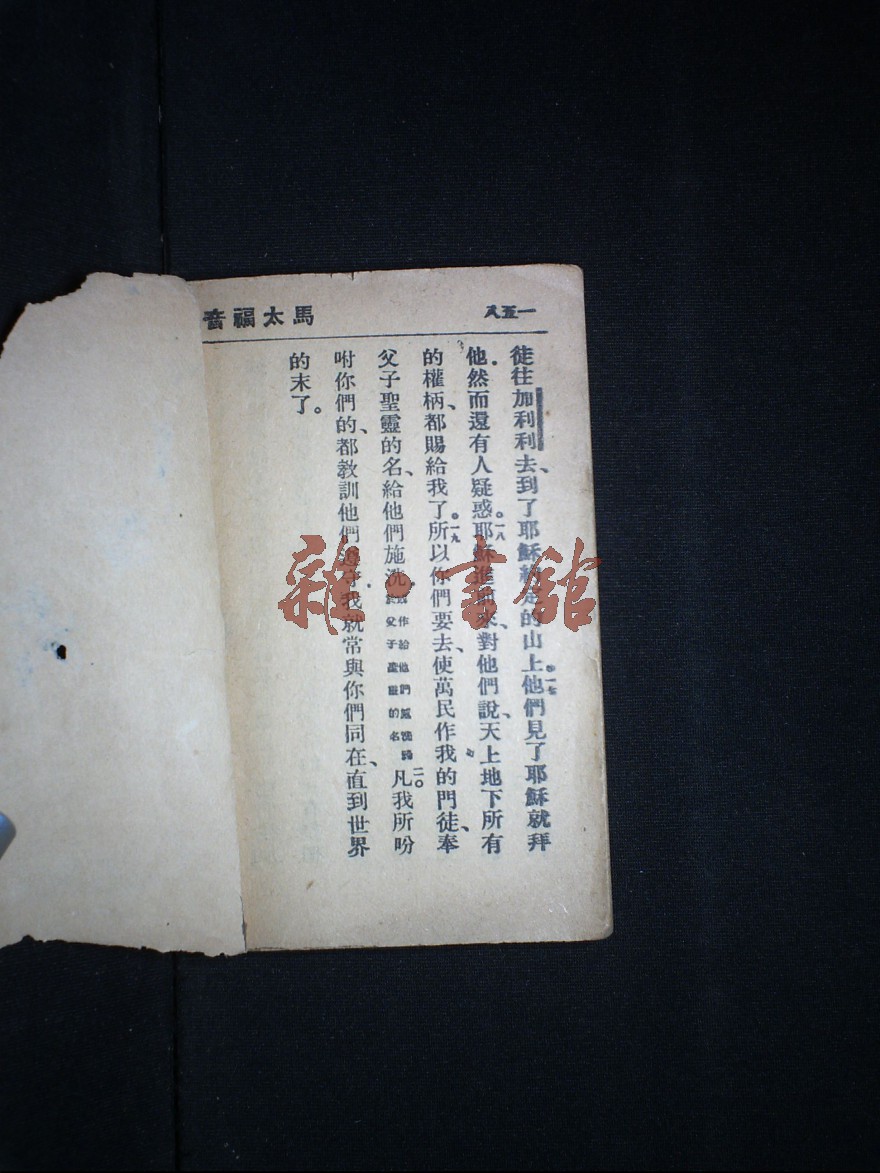 一五八
馬太福音
徒往加利利去、到了耶穌約定的山上。一七他們見了耶穌就拜
他。然而還有人疑惑。一八耶穌進前來、對他們說、天上地下所有
的權柄、都賜給我了。一九所以你們要去、使萬民作我的門徒、奉
父子聖靈的名、給他們施洗。
作給他們施洗歸
於父子聖靈的名
二〇凡我所吩
咐你們的、都教訓他們遵守。我就常與你們同在、直到世界
的末了。
雜·書館